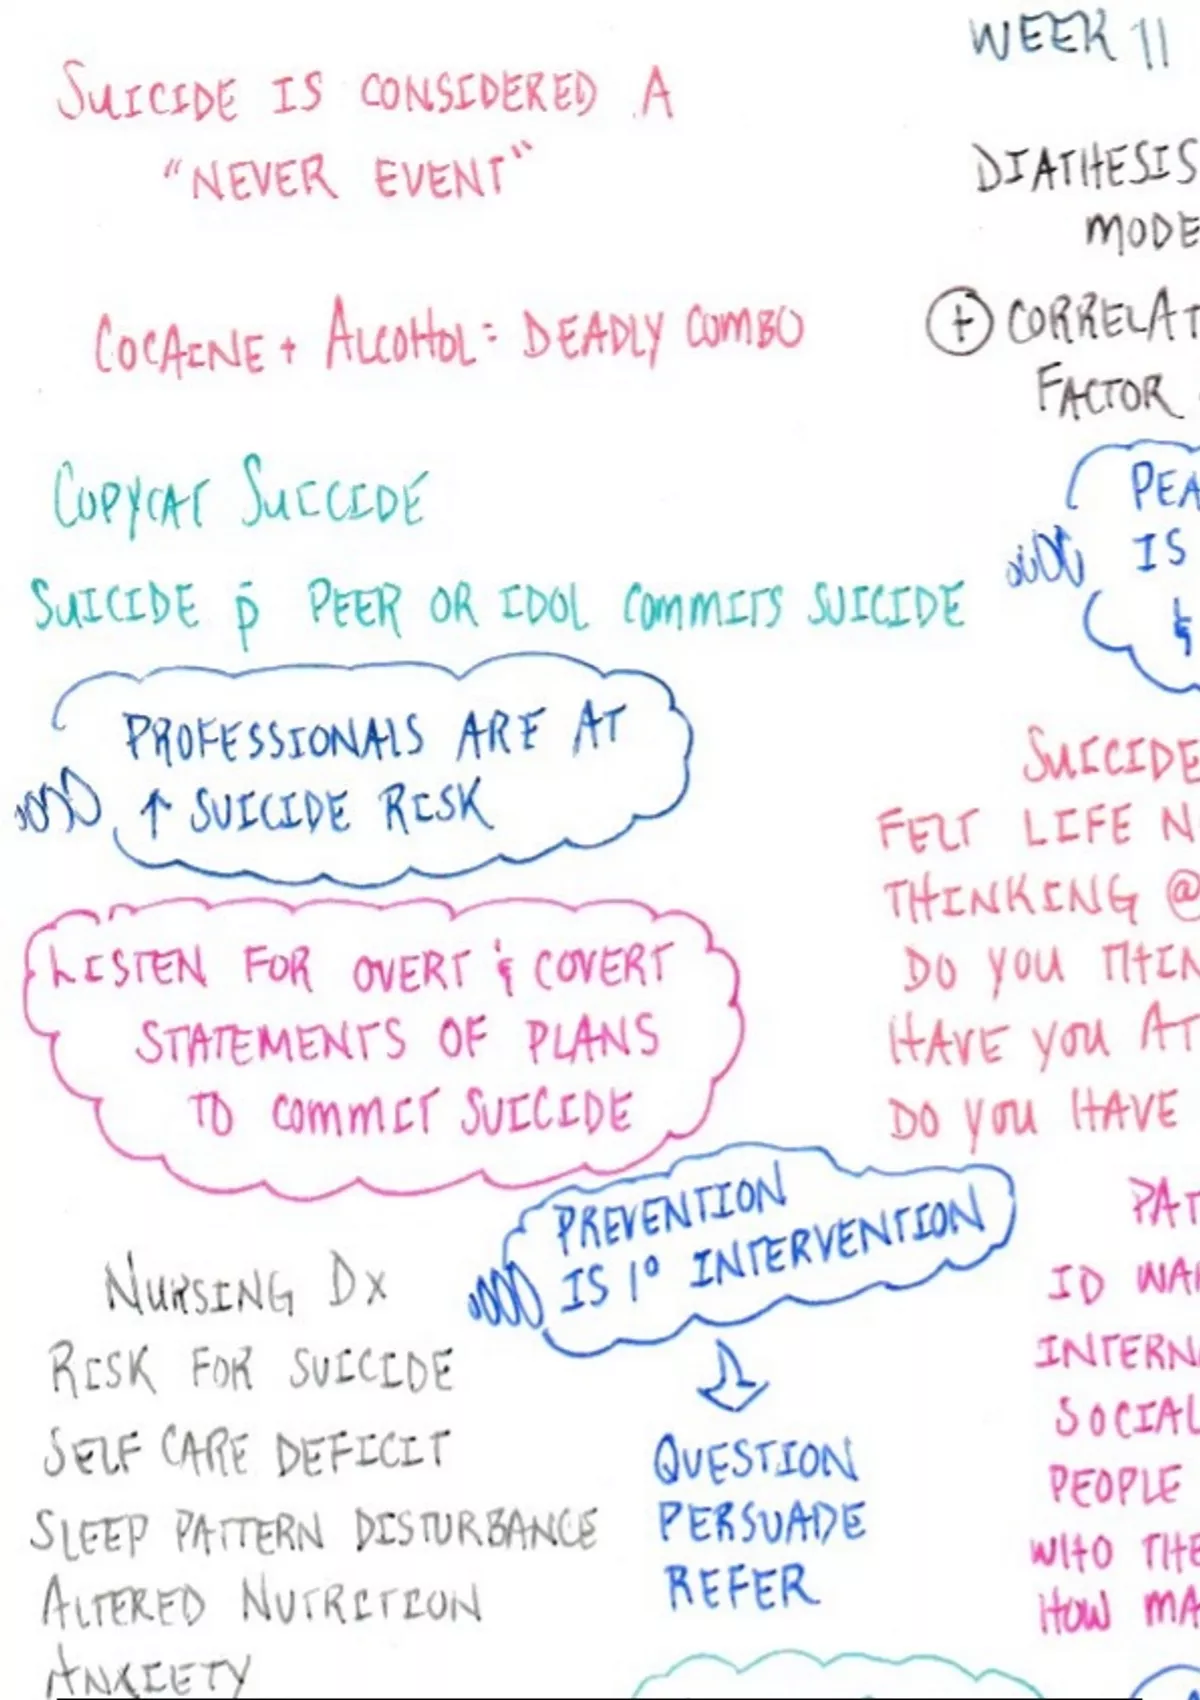 WEEK 11
SUICIDE IS CONSIDERED A
"NEVER EVENT"
COCAINE + ALCOHOL = DEADLY COMBO
COPYCAT SUICIDE
SUICIDE p̄ PEER OR IDOL COMMITS SUICIDE
PROFESSIONALS ARE AT
↑ SUICIDE RISK
LISTEN FOR OVERT & COVERT
STATEMENTS OF PLANS
TO COMMIT SUICIDE
PREVENTION
IS 1° INTERVENTION
QUESTION
PERSUADE
REFER
NURSING DX
RISK FOR SUICIDE
SELF CARE DEFICIT
SLEEP PATTERN DISTURBANCE
ALTERED NUTRITION
ANXIETY
DIATHESIS
MODE
(+) CORRELAT
FACTOR
PEA
IS
&
SUICIDE
FELT LIFE N
THINKING @
DO YOU THIN
HAVE YOU AT
DO YOU HAVE
PAT
ID WA
INTERN
SOCIAL
PEOPLE
WHO THE
HOW MA